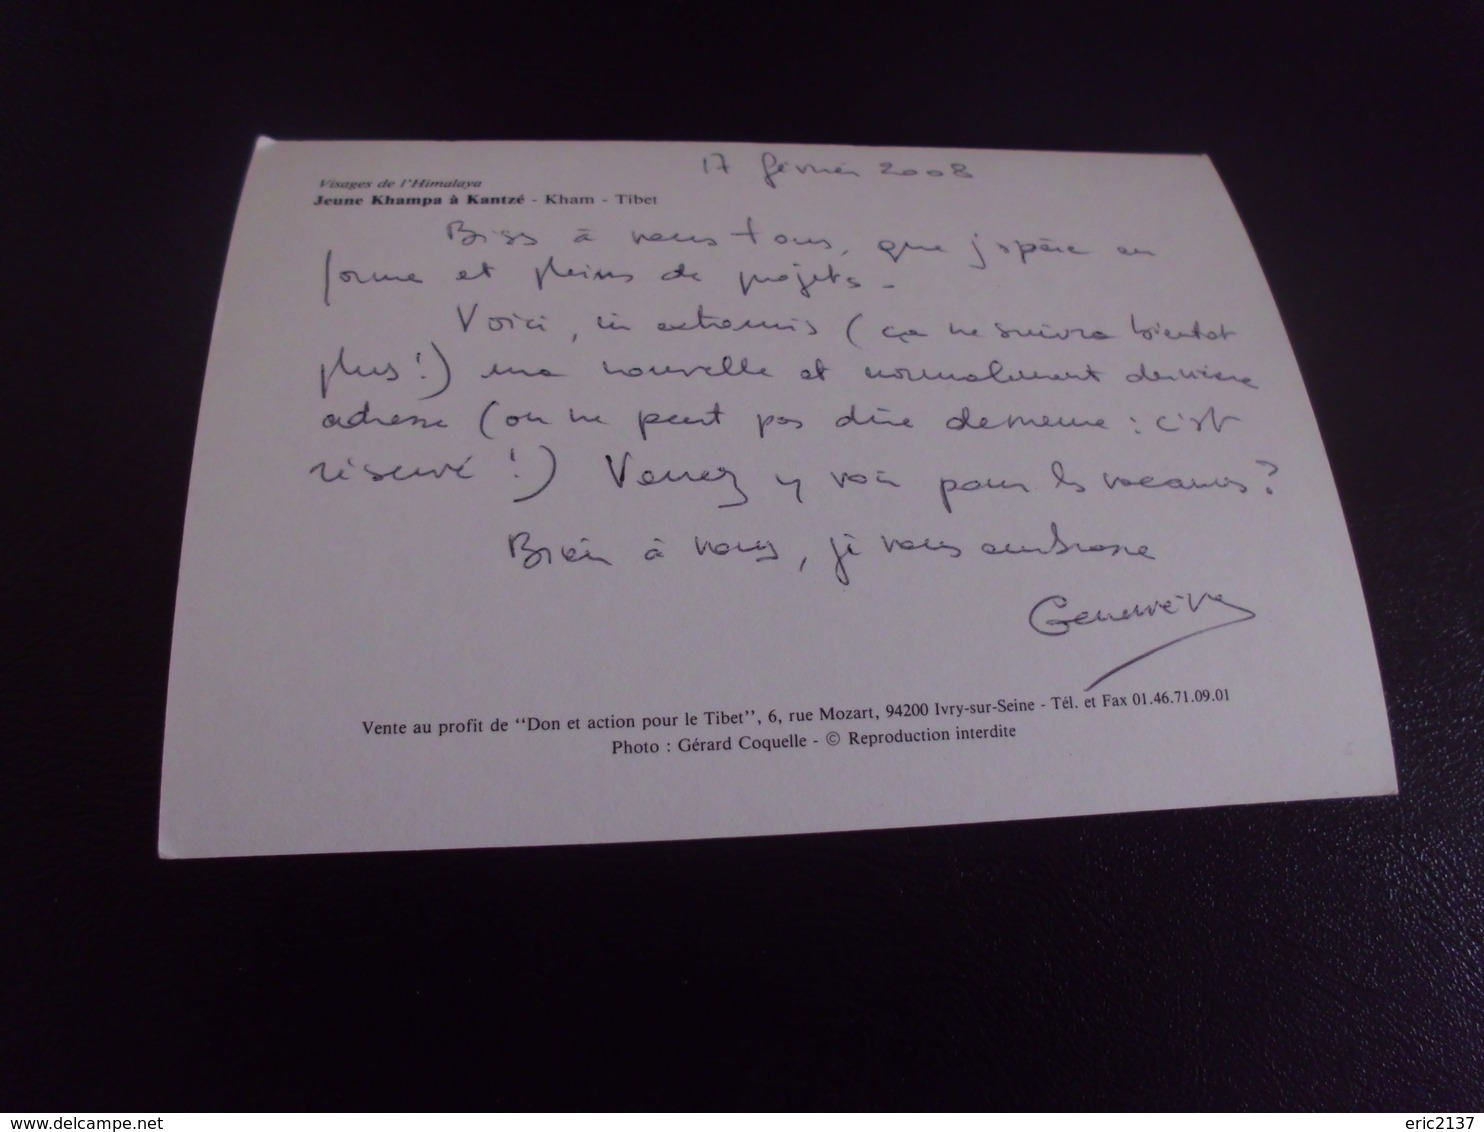 17 février 2008
Visages de l'Himalaya
Jeune Khampa à Kantzé - Kham - Tibet
à vous tous, que j'espère en
forme et pleins de projets.
Voici, in extremis (ça ne suivra bientot
plus!) ma nouvelle et normalement dernière
adresse (on ne peut pas dire demeure : c'est
réservé !) Venez y voir pour les vacances ?
Bien à vous, je vous embrasse
Geneviève
Vente au profit de "Don et action pour le Tibet", 6, rue Mozart, 94200 Ivry-sur-Seine - Tél. et Fax 01.46.71.09.01
Photo : Gérard Coquelle - © Reproduction interdite
delcampe.net
eric2137